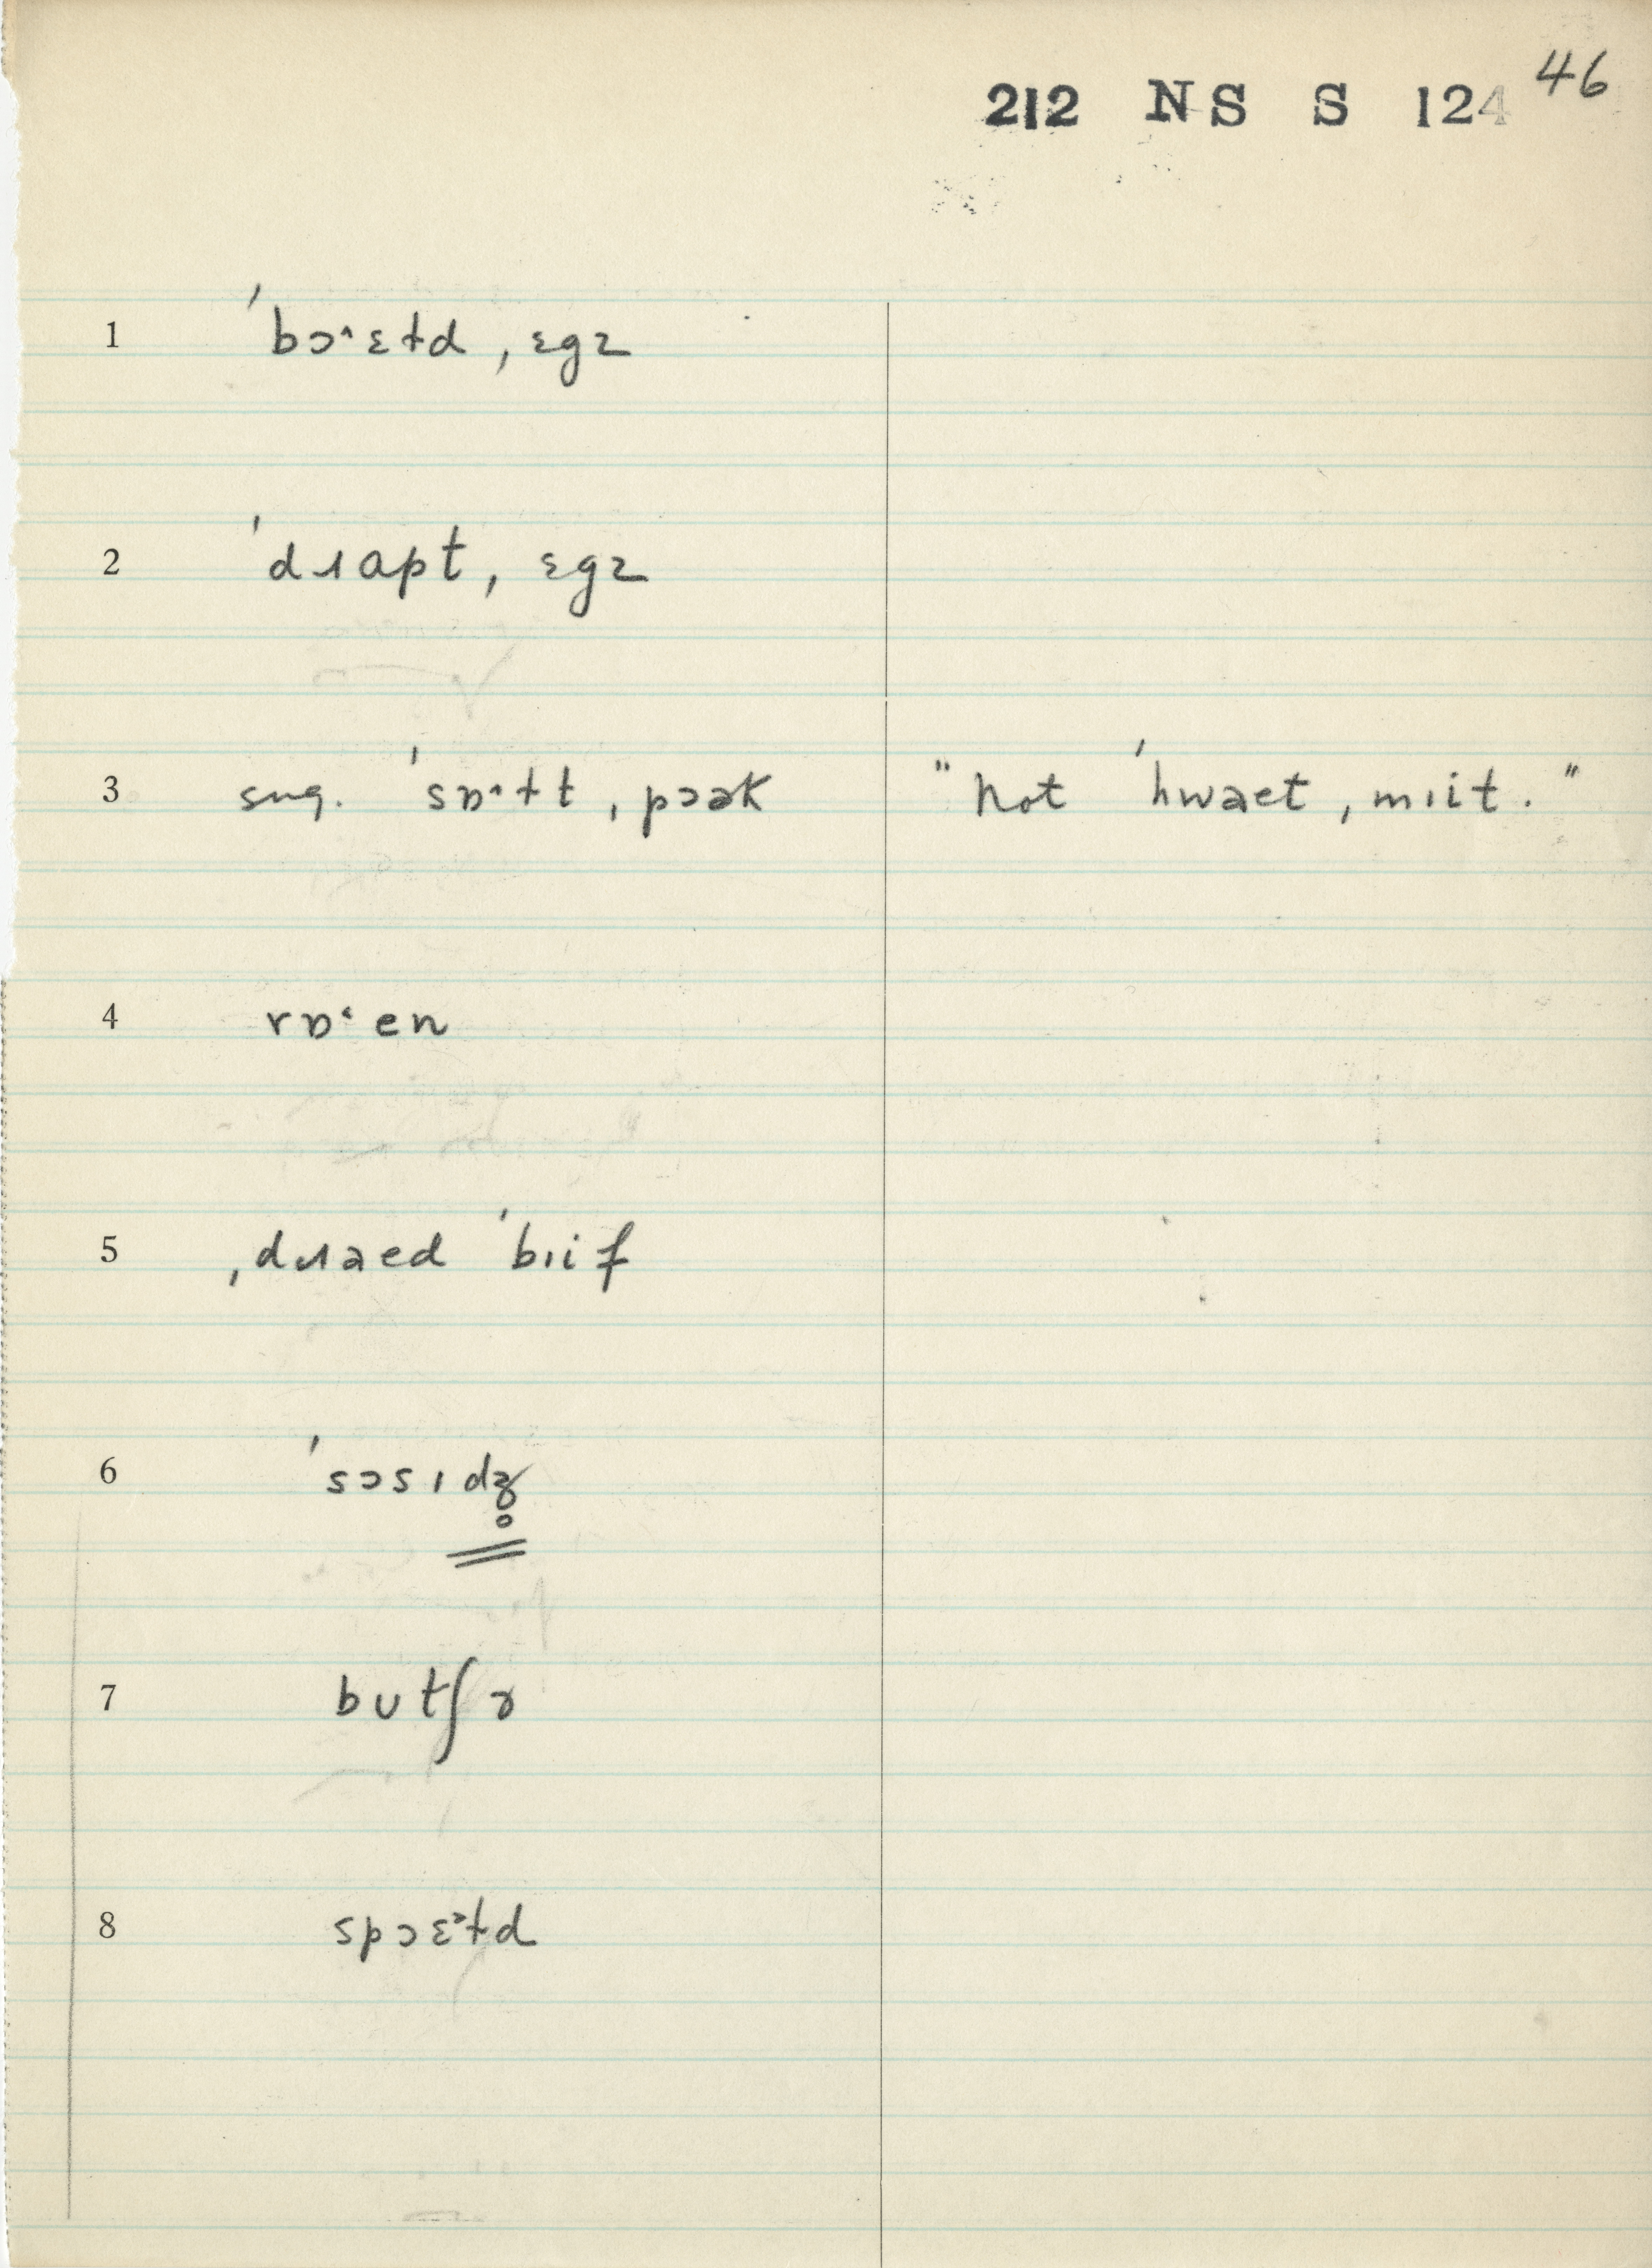 212 NS S 124 46
1 ˈbɔ˄ɛɫd ˌɛgz
2 ˈdɹɑpt ˌɛgz
3 sug. ˈsɒ˄ɫt ˌpɔək "not ˈhwəet ˌmɪit."
4 rɒ˂en
5 ˌdɹəed ˈbɪif
6 ˈsɔsɪdʒ̥
7 butʃɚ
8 spɔɛ˃ɫd